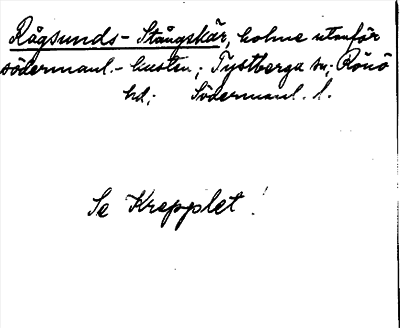 Rågsunds-Stångskär, holme utanför
södermanl.-kusten; Tystberga sn; Rönö
hd; Södermanl. l.
Se Krepplet!